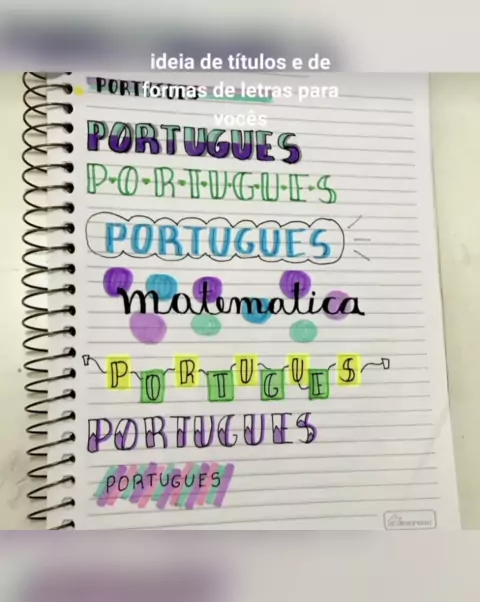 ideia de títulos e de
formas de letras para
vocês
PORTUGUES
PORTUGUES
P·O·R·T·U·G·U·E·S
PORTUGUES
matematica
PORTUGUES
PORTUGUES
PORTUGUES